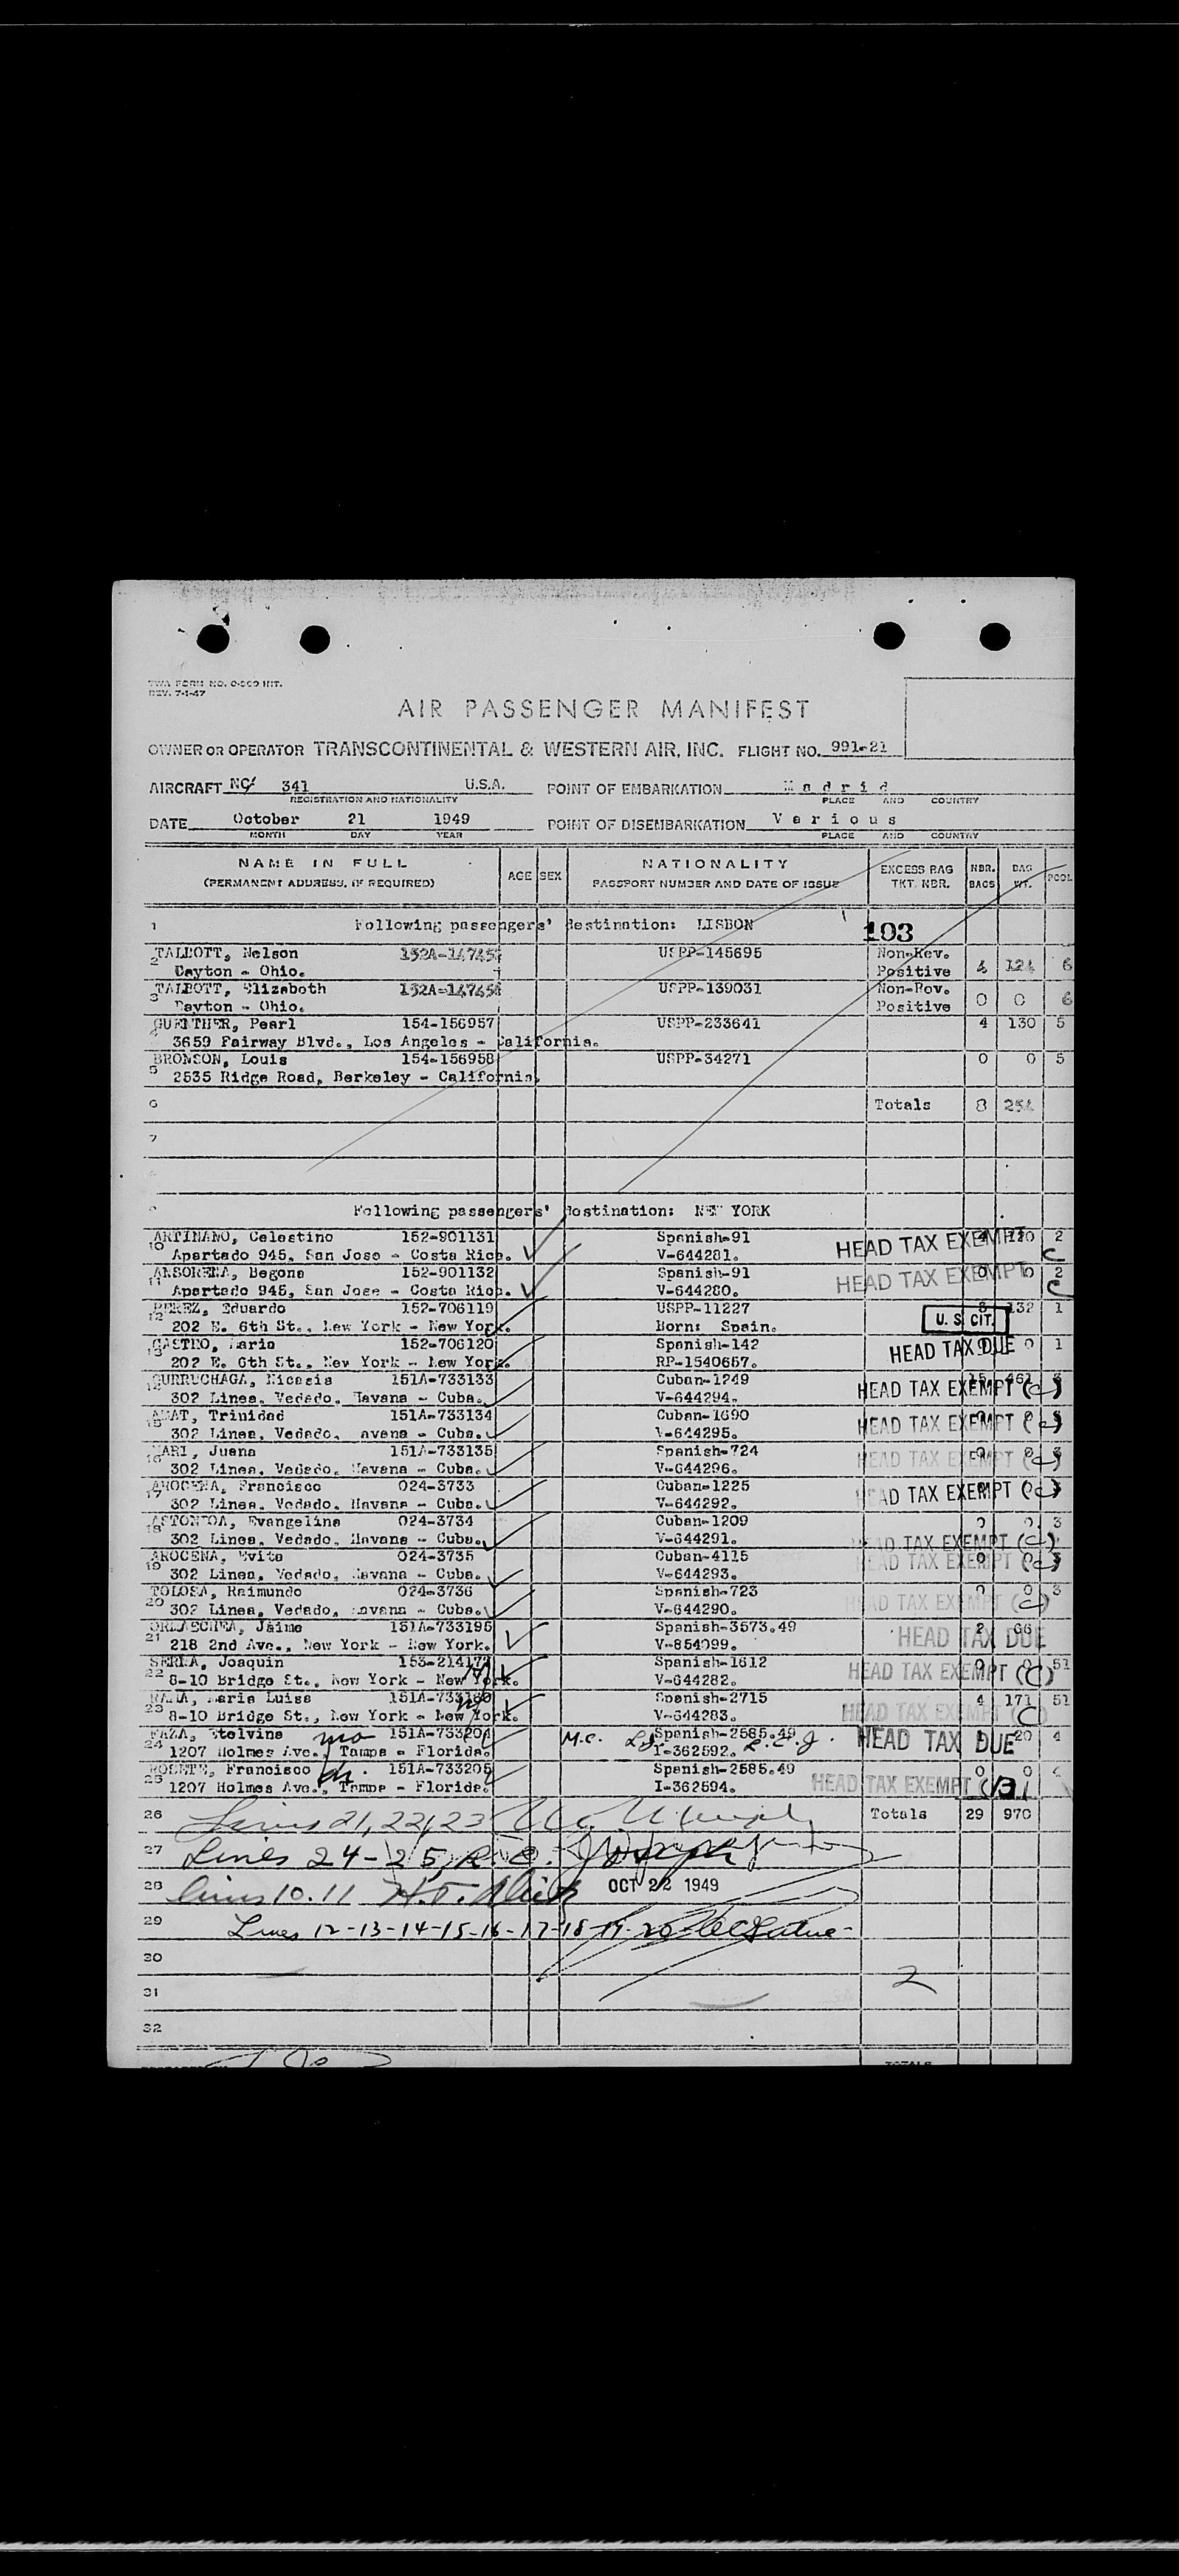 TWA FORM NO. O-909 INT.
REV. 7-1-47
AIR PASSENGER MANIFEST
OWNER OR OPERATOR TRANSCONTINENTAL & WESTERN AIR, INC. FLIGHT NO. 991-21
AIRCRAFT NC 341 U.S.A. POINT OF EMBARKATION Madrid
REGISTRATION AND NATIONALITY PLACE AND COUNTRY
DATE October 21 1949 POINT OF DISEMBARKATION Various
MONTH DAY YEAR PLACE AND COUNTRY
NAME IN FULL AGE SEX NATIONALITY EXCESS BAG NBR. BAG POOL
(PERMANENT ADDRESS, IF REQUIRED) PASSPORT NUMBER AND DATE OF ISSUE TKT. NBR. BAGS WT.
1 Following passengers' Destination: LISBON 103
2 TALBOTT, Nelson 152A-14745 USPP-145695 Non-Rev. 4 124 6
Dayton - Ohio. Positive
3 TALBOTT, Elizabeth 152A-14745 USPP-139031 Non-Rev. 0 0 6
Dayton - Ohio. Positive
GUENTHER, Pearl 154-156957 USPP-233641 4 130 5
3659 Fairway Blvd., Los Angeles - California.
5 BRONSON, Louis 154-156958 USPP-34271 0 0 5
2535 Ridge Road, Berkeley - California.
6 Totals 8 254
7
Following passengers' Destination: NEW YORK
10 ARTINANO, Celestino 152-901131 Spanish-91 HEAD TAX EXEMPT 2
Apartado 945, San Jose - Costa Rica. V-644281. C
11 ANSORENA, Begona 152-901132 Spanish-91 HEAD TAX EXEMPT 0 0 2
Apartado 945, San Jose - Costa Rica. V-644280. C
12 PEREZ, Eduardo 152-706119 USPP-11227 3 132 1
202 E. 6th St., New York - New York. Born: Spain. U. S. CIT.
13 CASTRO, Maria 152-706120 Spanish-142 HEAD TAX DUE 0 0 1
202 E. 6th St., New York - New York. RP-1540667.
14 GURRUCHAGA, Nicasia 151A-733133 Cuban-1249 15 461 3
302 Linea, Vedado, Havana - Cuba. V-644294. HEAD TAX EXEMPT (C)
15 AMAT, Trinidad 151A-733134 Cuban-1690 0 0 3
302 Linea, Vedado, Havana - Cuba. V-644295. HEAD TAX EXEMPT (C)
16 MARI, Juana 151A-733135 Spanish-724 0 0 3
302 Linea, Vedado, Havana - Cuba. V-644296. HEAD TAX EXEMPT (C)
17 AROCENA, Francisco 024-3733 Cuban-1225
302 Linea, Vedado, Havana - Cuba. V-644292. HEAD TAX EXEMPT (C)
18 ASTONDOA, Evangelina 024-3734 Cuban-1209 0 0 3
302 Linea, Vedado, Havana - Cuba. V-644291. HEAD TAX EXEMPT (C)
19 AROCENA, Evita 024-3735 Cuban-4115 HEAD TAX EXEMPT (C) 0 0 3
302 Linea, Vedado, Havana - Cuba. V-644293.
20 TOLOSA, Raimundo 024-3736 Spanish-723 0 0 3
302 Linea, Vedado, Havana - Cuba. V-644290. HEAD TAX EXEMPT (C)
21 Jaime 151A-733195 Spanish-3573.49 2 66
218 2nd Ave., New York - New York. V-854099. HEAD TAX DUE
22 SERRA, Joaquin 153-214173 Spanish-1612 0 0 51
8-10 Bridge St., New York - New York. V-644282. HEAD TAX EXEMPT (C)
23 Maria Luisa 151A-733180 Spanish-2715 4 171 51
8-10 Bridge St., New York - New York. V-644283. HEAD TAX EXEMPT (C)
24 FAZA, Etelvina 151A-733204 M.C. Spanish-2585.49 HEAD TAX DUE 20 4
1207 Holmes Ave., Tampa - Florida. I-362592.
25 ROSETE, Francisco 151A-733205 Spanish-2585.49 0 0 4
1207 Holmes Ave., Tampa - Florida. I-362594. HEAD TAX EXEMPT (B)
26 Lines 21, 22, 23 Totals 29 970
27 Lines 24-25
28 Lines 10. 11 OCT 22 1949
29 Lines 12-13-14-15-16-17-18-19-20
30
31 2
32
TOTALS